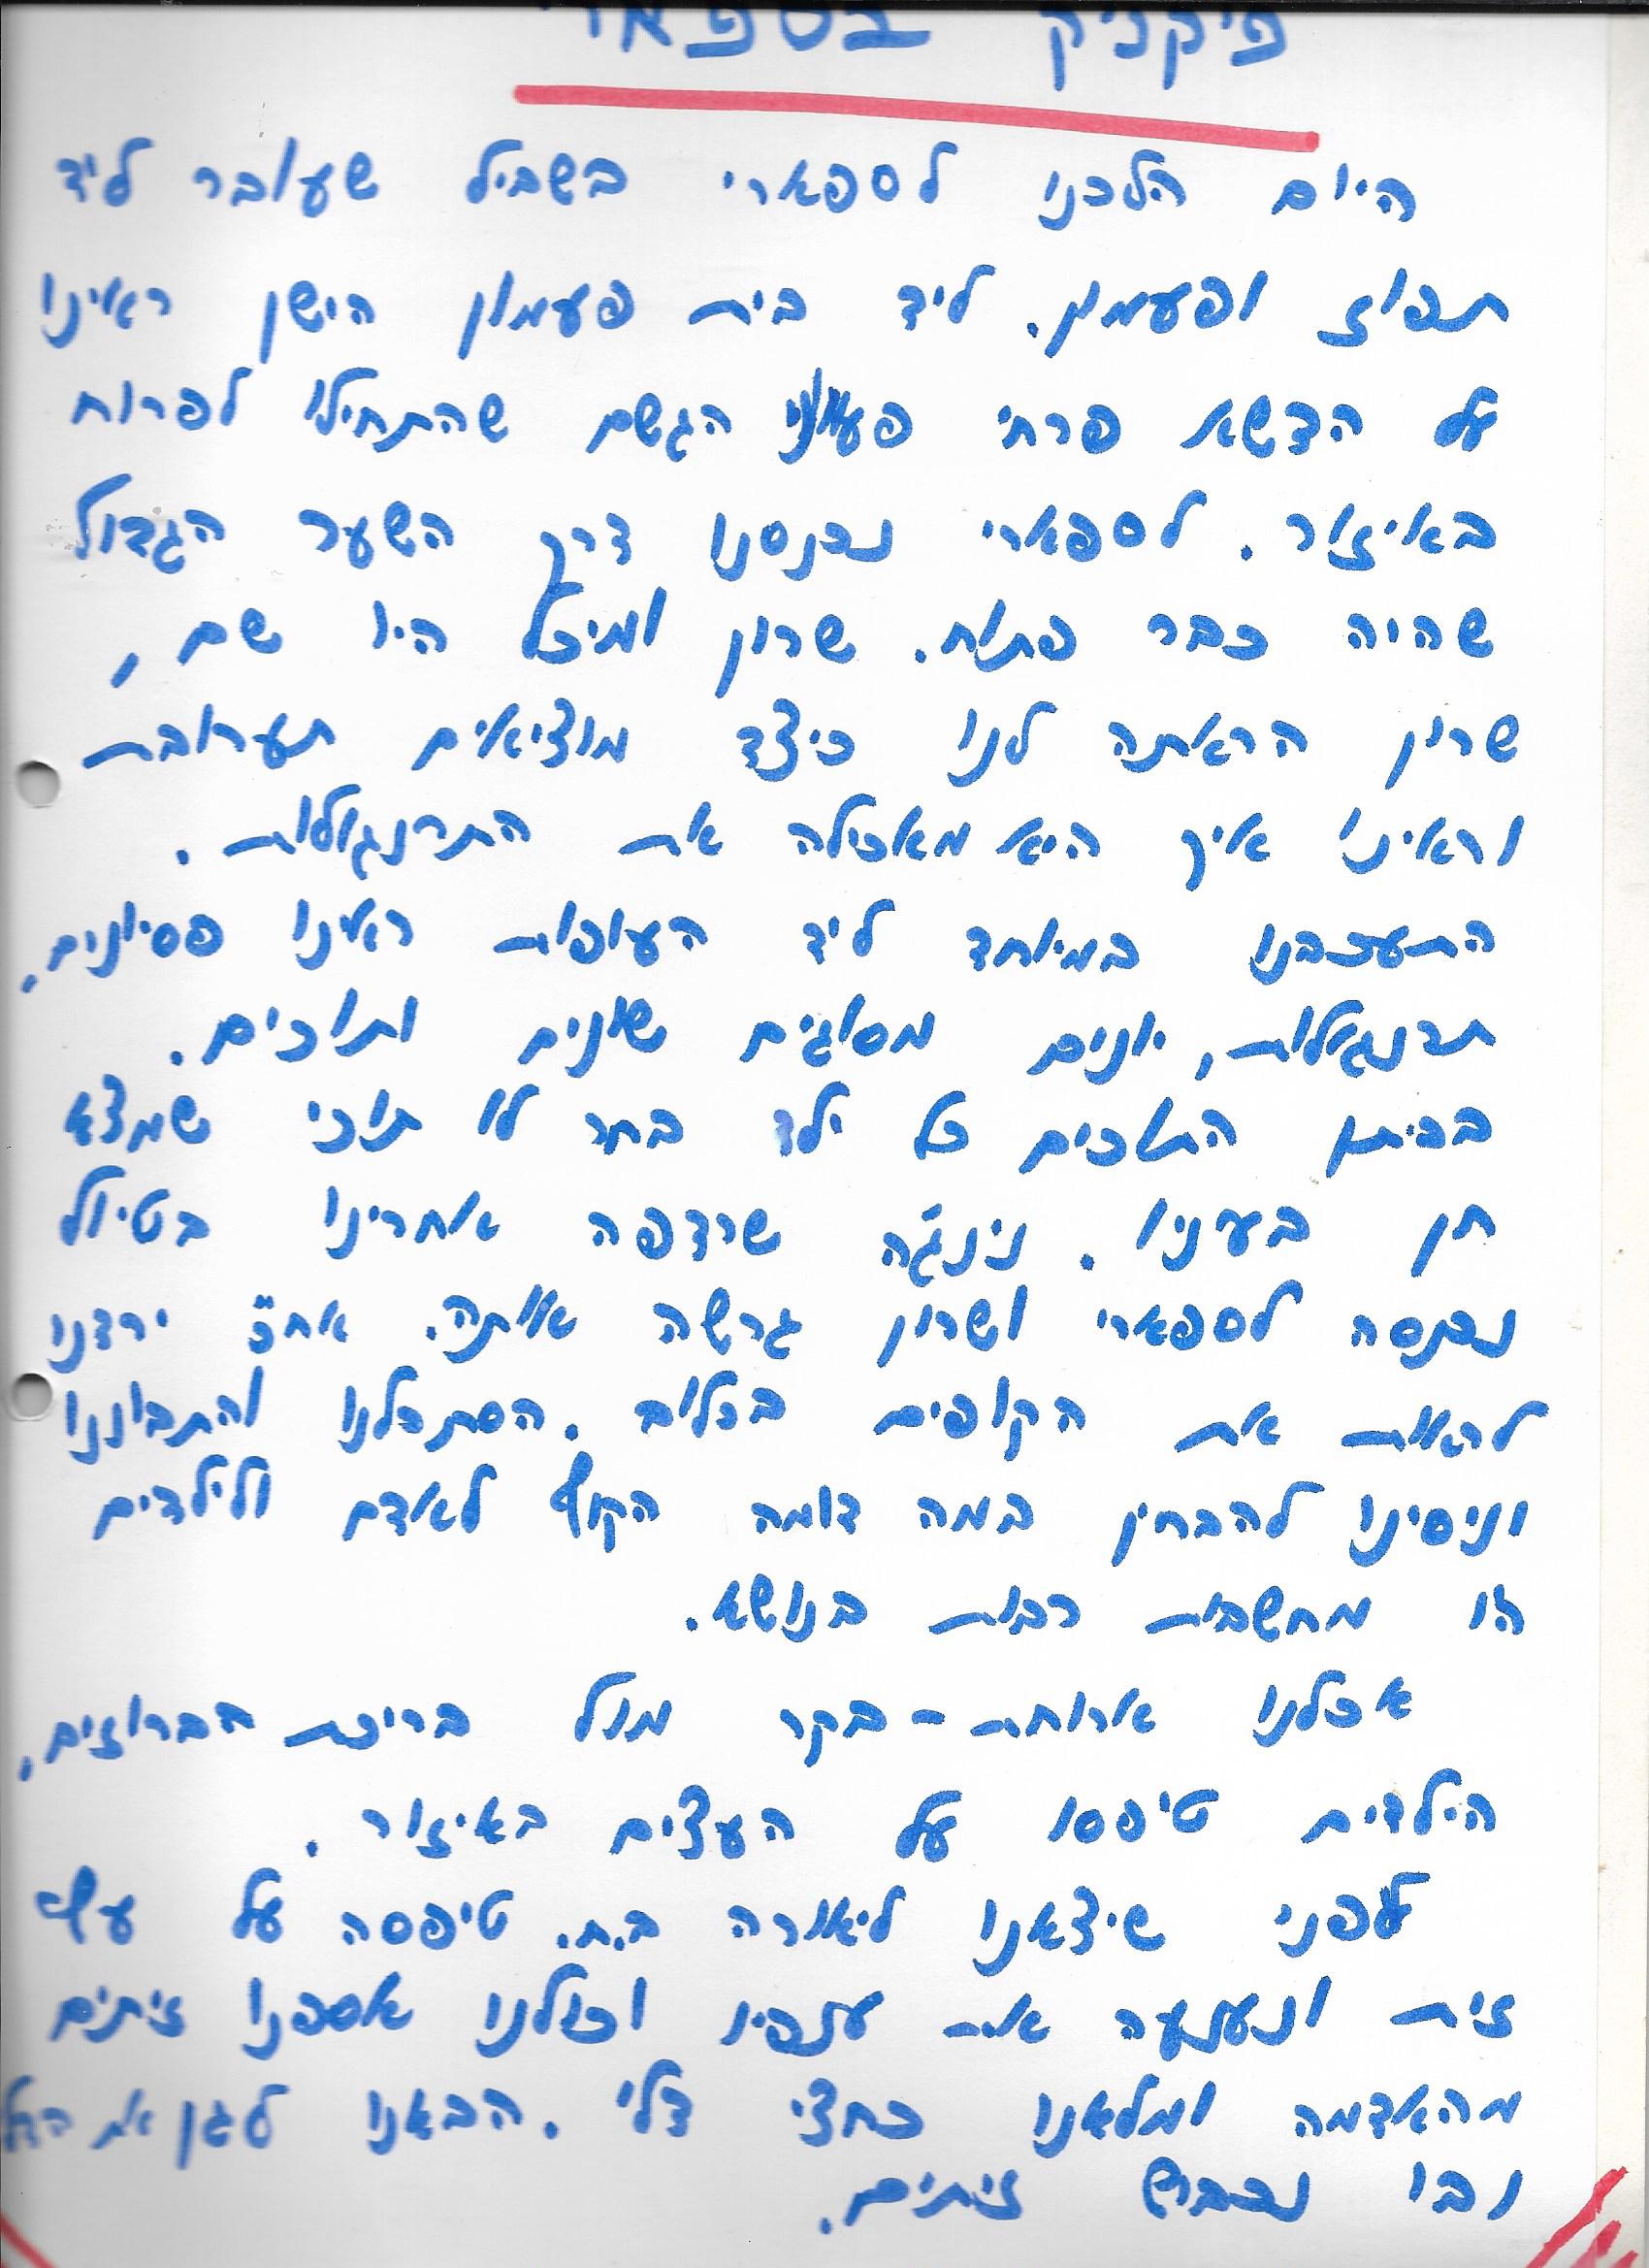 פיקניק בספארי
היום הלכנו לספארי בשביל שעובר ליד
תפוז ופעמון. ליד בית פעמון הישן ראינו
על הדשא פרחי פעמוני הגשם שהתחילו לפרוח
באיזור. לספארי נכנסנו דרך השער הגדול
שהיה כבר פתוח. שרון ומיכל היו שם,
שרון הראתה לנו כיצד מוציאים תערובת
וראינו איך היא מאכילה את התרנגולות.
התעכבנו במיוחד ליד העופות ראינו פסיונים,
תרנגולות, יונים מסוגים שונים ותוכים.
בביתן התוכים כל ילד בחר לו תוכי שמצא
חן בעיניו. נינג'ה שרדפה אחרינו בטיול
נכנסה לספארי ושרון גרשה אותה. אח"כ ירדנו
לראות את הקופים בכלוב. הסתכלנו והתבוננו
וניסינו להבחין במה דומה הקוף לאדם ולילדים
היו מחשבות רבות בנושא.
אכלנו ארוחת-בקר מול בריכת הברוזים,
הילדים טיפסו על העצים באיזור.
לפני שיצאנו ליאורה ב.ח. טיפסה על ענף
זית ונענעה את ענפיו וכולנו אספנו זיתים
מהאדמה ומלאנו כחצי דלי. הבאנו לגן את הדלי
ובו נכבוש זיתים.